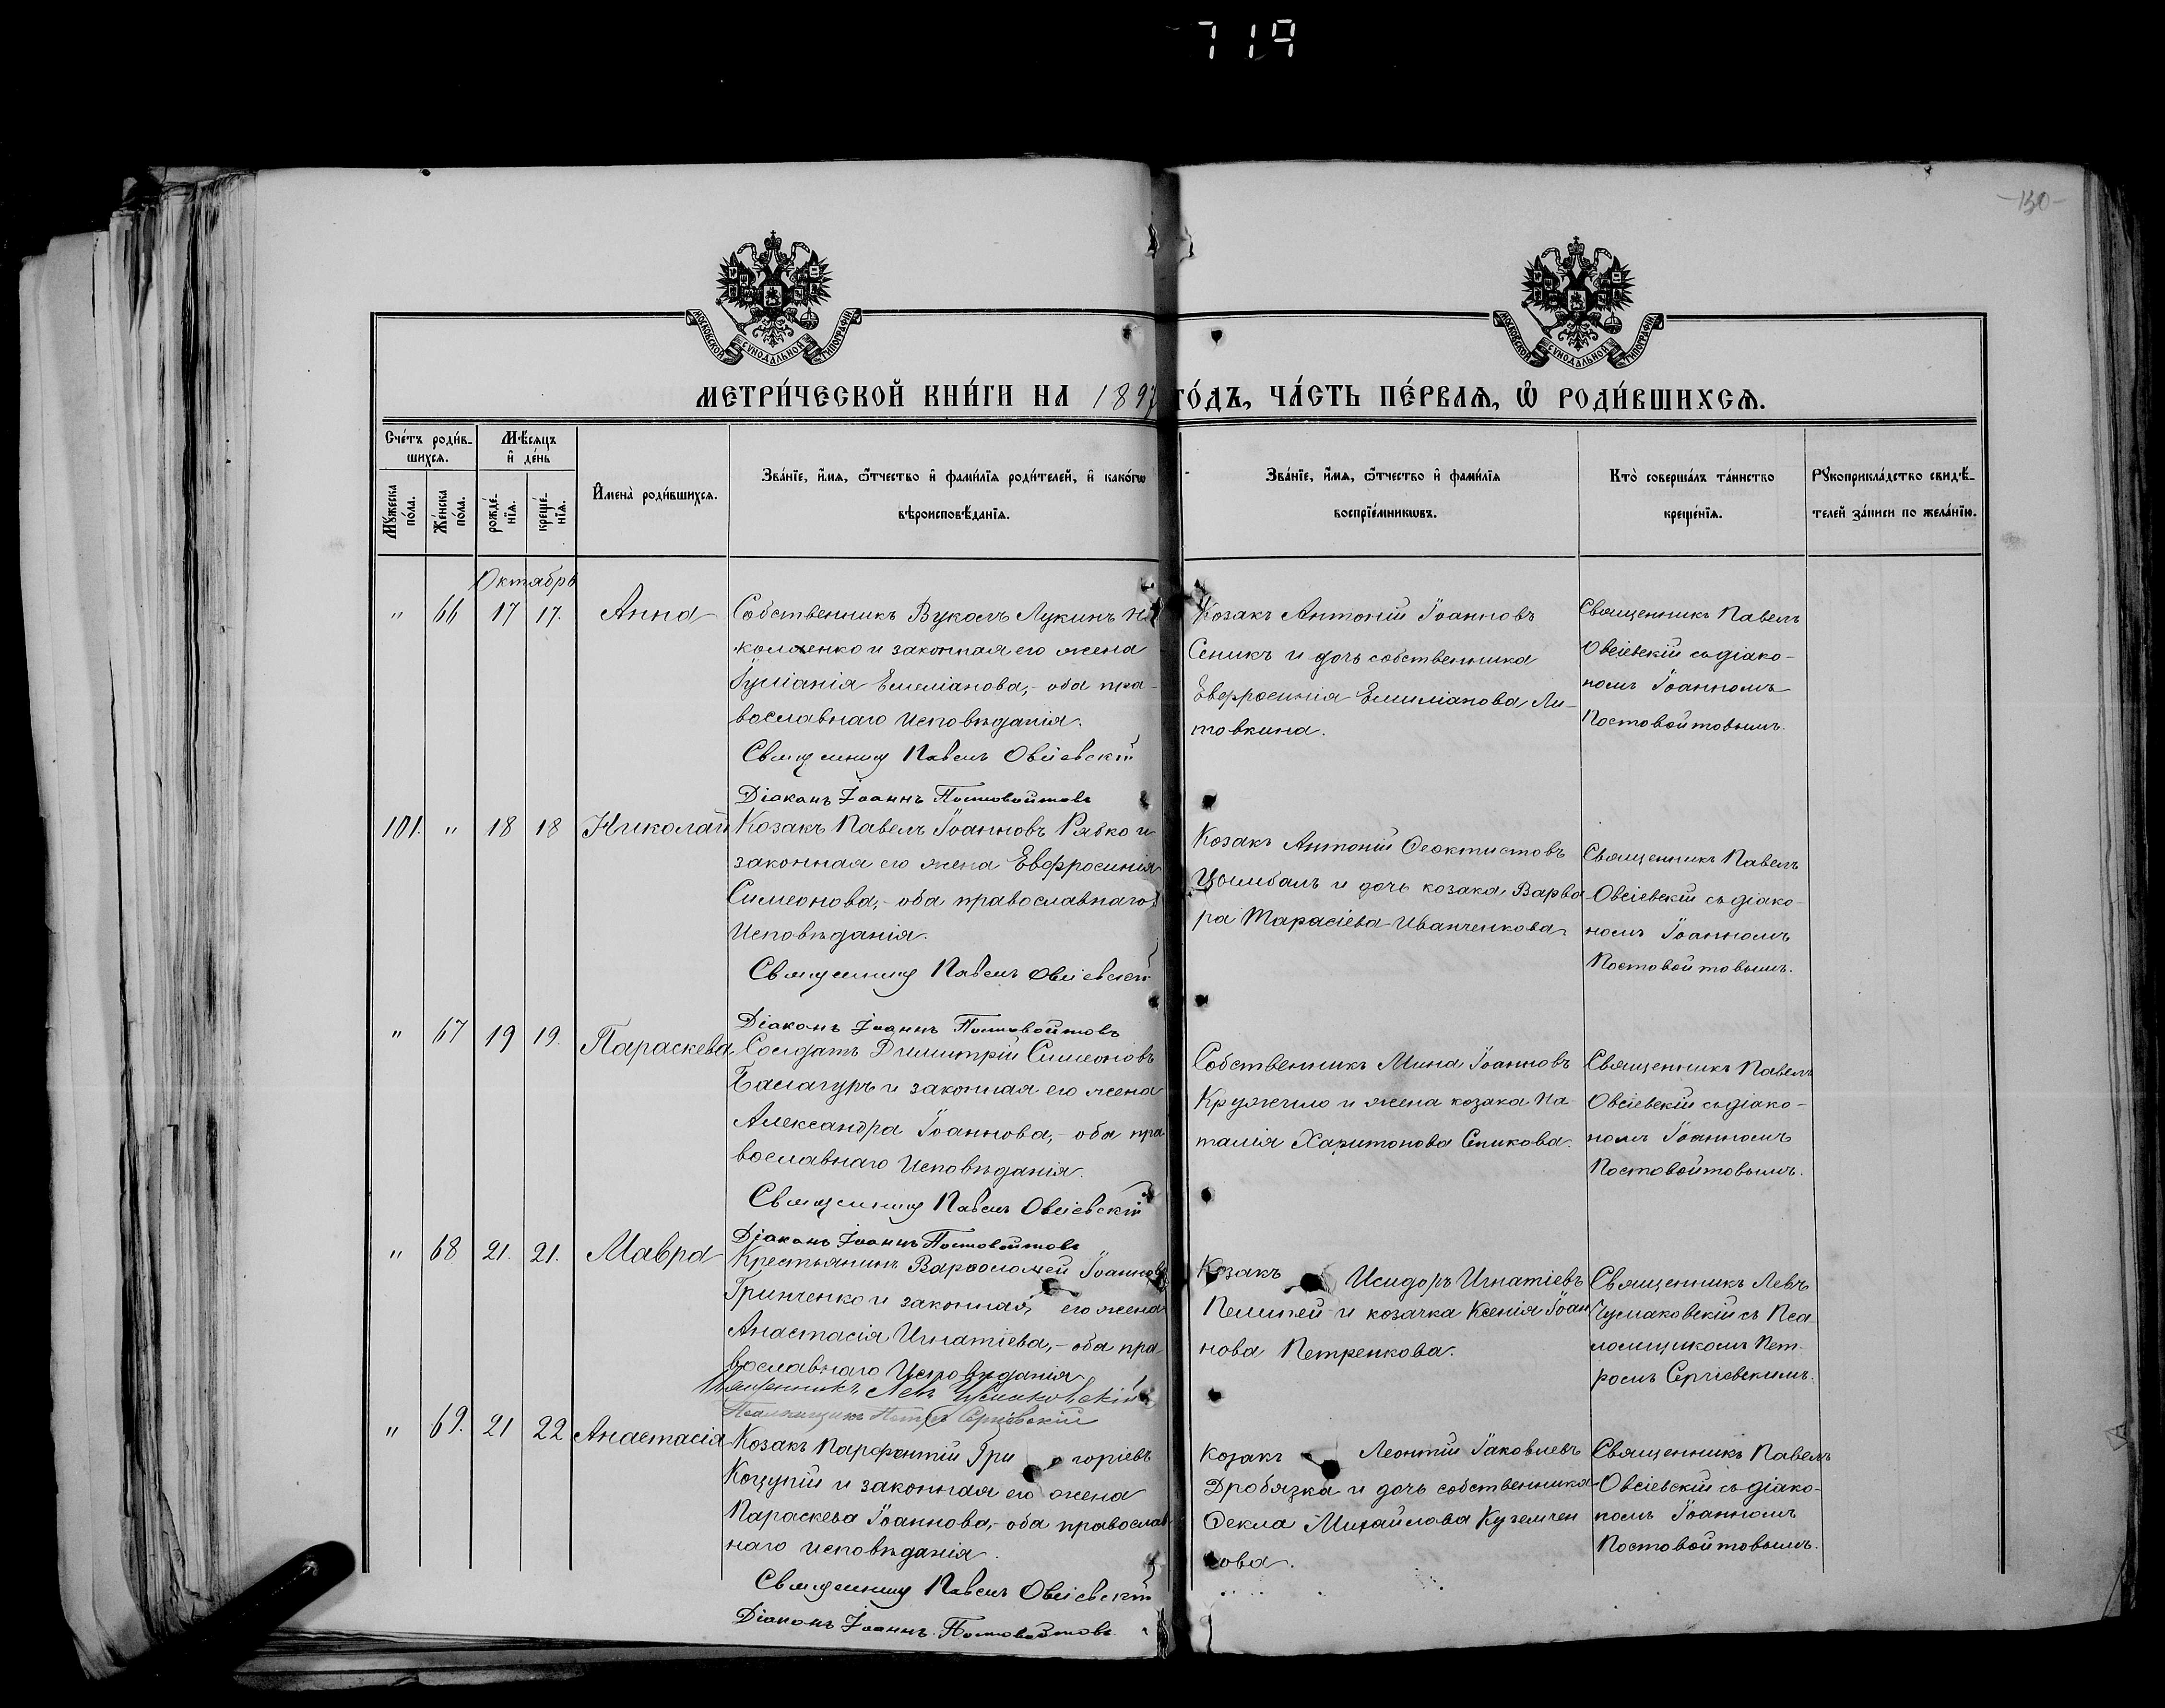 719
130
МОСКОВСКОЙ СѴНОДАЛЬНОЙ ТИПОГРАФІИ
МОСКОВСКОЙ СѴНОДАЛЬНОЙ ТИПОГРАФІИ
МЕТРИ́ЧЕСКОЙ КНИ́ГИ НА 1897 ГО́ДЪ, ЧА́СТЬ ПЕ́РВАѦ, Ѡ РОДИ́ВШИХСѦ.
Сче́тъ роди́в-
шихсѧ.
Мꙋ́жеска
по́ла.
Же́нска
по́ла.
Мѣ́сѧцъ
и҆ де́нь
рожде́-
нїѧ.
креще́-
нїѧ.
И҆мена̀ роди́вшихсѧ.
Зва́нїе, и҆́мѧ, ѻ҆́тчество и҆ фами́лїѧ роди́телей, и҆ како́гѡ
вѣроисповѣ́данїѧ.
Зва́нїе, и҆́мѧ, ѻ҆́тчество и҆ фами́лїѧ
воспрїе́мникѡвъ.
Кто̀ соверша́лъ та́инство
креще́нїѧ.
Рꙋкоприкла́дство свидѣ́-
телей за́писи по жела́нїю.
Октябрь
" 66 17 17. Анна
Собственникъ Вуколъ Лукинъ
коленко и законная его жена
Іуліанія Емеліанова,- оба пра-
вославнаго Исповѣданія.
Священникъ Павелъ Овсіевскій
Діаконъ Іоаннъ Постовойтовъ
Козакъ Антоній Іоанновъ
Сеникъ и дочь собственника
Евфросинія Емиліанова Ли-
товкина.
Священникъ Павелъ
Овсіевскій съ діако-
номъ Іоанномъ
Постовойтовымъ.
101. " 18 18 Николай
Козакъ Павелъ Іоанновъ Рябко и
законная его жена Евфросинія
Симеонова,- оба православнаго
Исповѣданія.
Священникъ Павелъ Овсіевскій
Діаконъ Іоаннъ Постовойтовъ
Козакъ Антоній Ѳеоктистовъ
Цымбалъ и дочь козака Варва
ра Тарасіева Иванченкова
Священникъ Павелъ
Овсіевскій съ діако-
номъ Іоанномъ
Постовойтовымъ.
" 67 19 19. Параскева
Солдатъ Димитрій Симеоновъ
Балагуръ и законная его жена
Александра Іоаннова,- оба пра
вославнаго Исповѣданія.
Священникъ Павелъ Овсіевскій
Діаконъ Іоаннъ Постовойтовъ
Собственникъ Мина Іоанновъ
Кружило и жена козака На-
талія Харитонова Сеникова.
Священникъ Павелъ
Овсіевскій съ діако-
номъ Іоанномъ
Постовойтовымъ.
" 68 21. 21. Мавра
Крестьянинъ Варѳоломей Іоанновъ
Гринченко и законная его жена
Анастасія Игнатіева,- оба пра
вославнаго Исповѣданія
Священникъ Левъ Чусмаковскій
Псаломщикъ Петръ Сергіевскій
Козакъ Исидоръ Игнатіевъ
Пелипей и козачка Ксенія Іоан
нова Петренкова.
Священникъ Левъ
Чусмаковскій съ Пса
ломщикомъ Пет-
ромъ Сергіевскимъ.
" 69. 21 22 Анастасія
Козакъ Парфентій Григоріевъ
Коцупій и законная его жена
Параскева Іоаннова,- оба православ
наго исповѣданія.
Священникъ Павелъ Овсіевскій
Діаконъ Іоаннъ Постовойтовъ.
Козакъ Леонтій Іаковлевъ
Дробязка и дочь собственника
Ѳекла Михайлова Куземчен
кова.
Священникъ Павелъ
Овсіевскій съ діако-
номъ Іоанномъ
Постовойтовымъ.